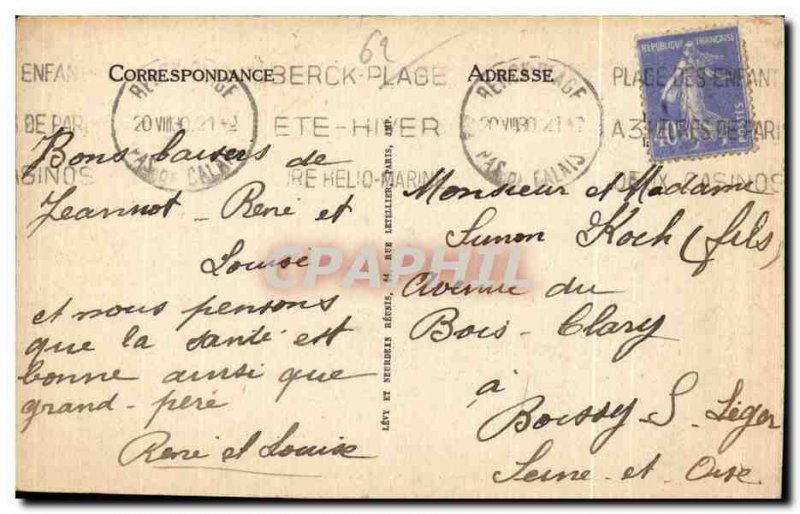 62
CORRESPONDANCE
ADRESSE
BERCK-PLAGE
PAS DE CALAIS
20 VIII 30
BERCK-PLAGE
ETE-HIVER
URE HELIO-MARIN
BERCK-PLAGE
PAS DE CALAIS
20 VIII 30
PLAGE DES ENFANT
A 3 HEURES DE PARI
DEUX CASINOS
ENFAN
S DE PARI
ASINOS
REPUBLIQUE FRANÇAISE
40
POSTES
Bons baisers de
Jeannot - René et
Louise
et nous pensons
que la santé est
bonne ainsi que
grand-père
René et Louise
LÉVY ET NEURDEIN RÉUNIS, 44 RUE LETELLIER, PARIS, IMP.
Monsieur et Madame
Koch (fils)
Avenue du
Bois-Clary
à
Boissy S. Léger
Seine-et-Oise
CPAPHIL